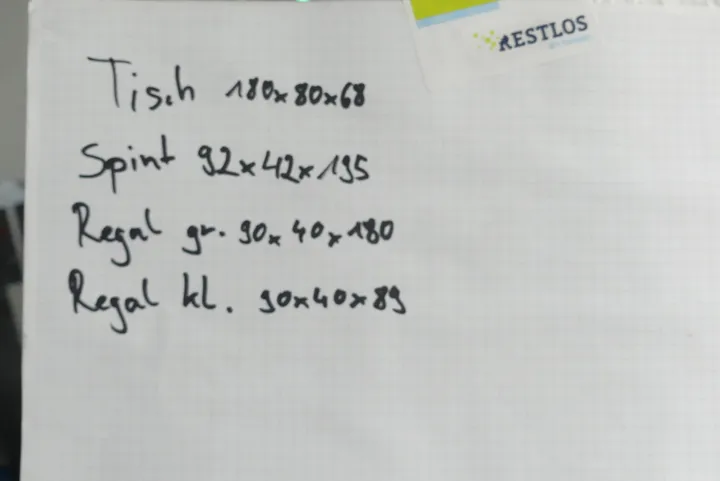 RESTLOS
Tisch 180x80x68
Spint 92x42x195
Regal gr. 90x40x180
Regal kl. 90x40x89